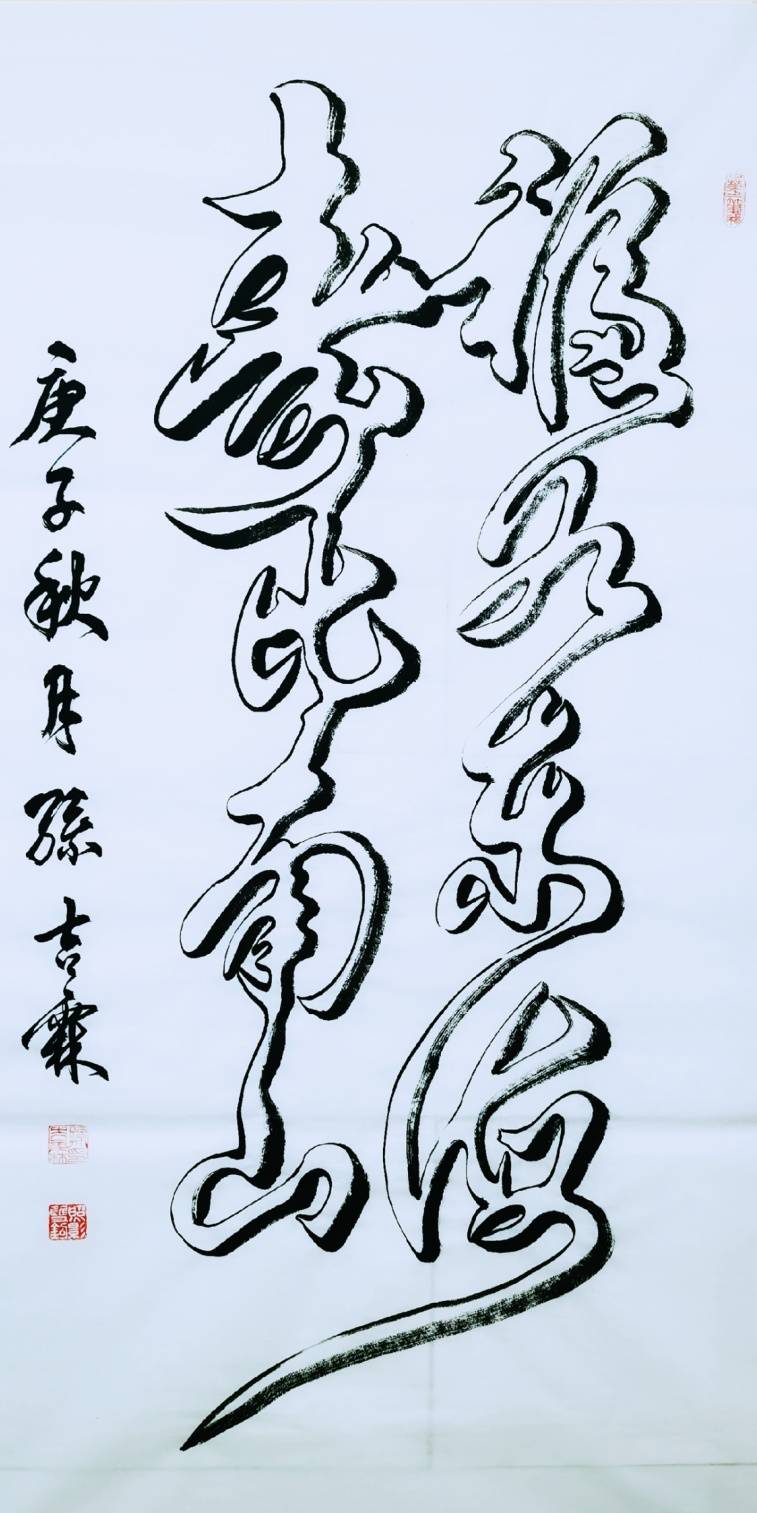 福如东海
寿比南山
庚子秋月孫吉霖